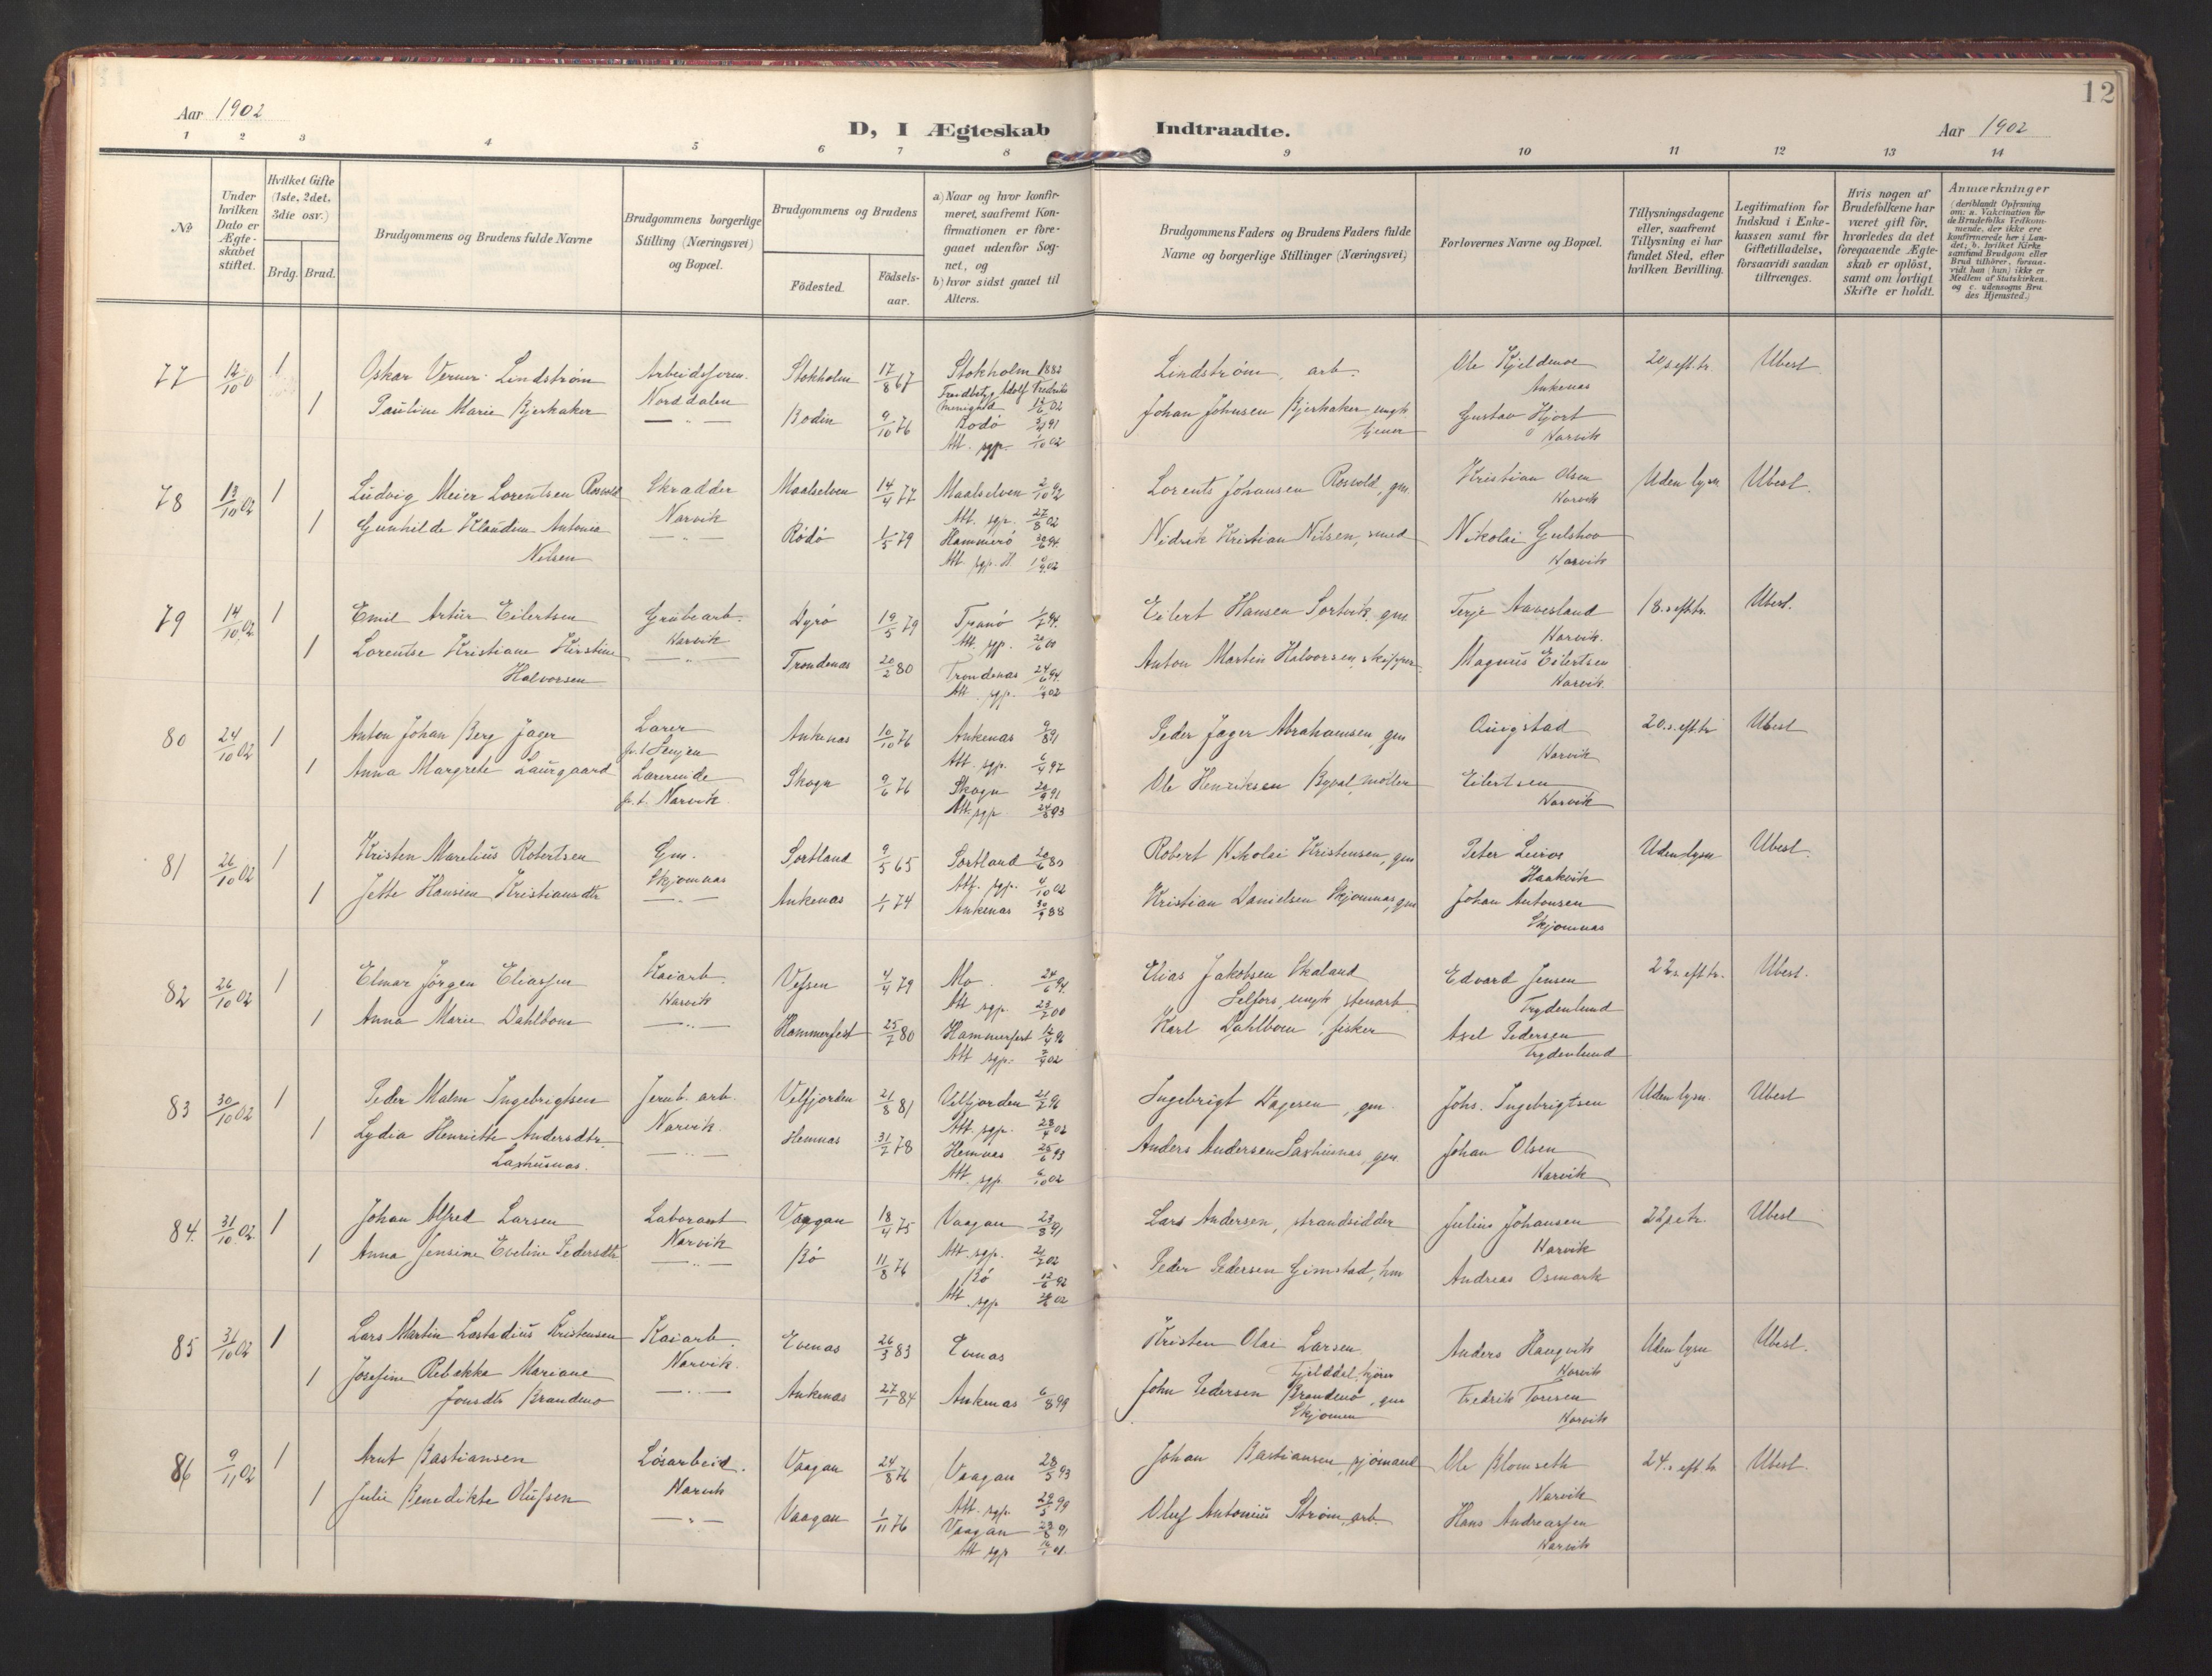 12
Aar 1902
D, I Ægteskab Indtraadte.
Aar 1902
1 2 3 4 5 6 7 8 9 10 11 12 13 14
№
Under hvilken Dato er Ægteskabet stiftet.
Hvilket Gifte (1ste, 2det, 3die osv.)
Brdg. Brud.
Brudgommens og Brudens fulde Navne
Brudgommens borgerlige Stilling (Næringsvei) og Bopæl.
Brudgommens og Brudens
Födested.
Födselsaar.
a) Naar og hvor konfirmeret, saafremt Konfirmationen er foregaaet udenför Sognet, og
b) hvor sidst gaaet til Alters.
Brudgommens Faders og Brudens Faders fulde Navne og borgerlige Stillinger (Næringsvei)
Forlovernes Navne og Bopæl.
Tillysningsdagene eller, saafremt Tillysning ei har fundet Sted, efter hvilken Bevilling.
Legitimation for Indskud i Enkekassen samt for Giftetilladelse, forsaavidt saadan tiltrænges.
Hvis nogen af Brudefolkene har været gift för, hvorledes da det foregaaende Ægteskab er oplöst, samt om lovligt Skifte er holdt.
Anmærkninger (deriblandt Oplysning om: a. Vakcination för de Brudefolks Vedkommende, der ikke ere konfirmerede her i Landet; b. hvilket Kirkesamfund Brudgom eller Brud tilhörer, forsaavidt han (hun) ikke er Medlem af Statskirken, og c. udensogns Brudes Hjemsted.)
77 12/10 0 1 Oskar Verner Lindstrøm Arbeidsform. Stokholm 17/8 67 Stokholm 1883 Lindstrøm, arb. Ole Kjeldenoe 20.s.eft.tr. Ubest.
Norddalen Adolf Fredriks menighed Ankenæs
1 Pauline Marie Bjerkaker — " — Bodin 9/10 76 Bodø 3/4 91 Johan Johnsen Bjerkaker ungk. tjener Gustav Hjort
Att. sgp. 1/10 02 Narvik
78 13/10 02 1 Ludvig Meier Lorentsen Rosvold Skrædder Maalselven 14/4 77 Maalselven 2/10 92 Lorents Johansen Rosvold, gm. Kristian Olsen Uden lysn Ubest.
Narvik Att. sgp. 27/8 02 Narvik
1 Gunhilde Klaudine Antonia — " — Rödö 1/5 79 Hammerö Nidrik Kristian Nilsen, smed Nikolai Gulshov
Nilsen Narvik
79 14/10 02 1 Emil Artur Eilertsen Grubearb. Dyrö 19/5 79 Tranö Eilert Hansen Sortvik, gm. Terje Aavesland 18.s.eft.tr. Ubest.
Narvik Att. sgp. Narvik.
1 Lorentse Kristiane Kirstine — " — Trondenæs 20/2 80 Trondenæs 24/6 94. Anton Martin Halvorsen, skipper. Magnus Eilertsen
Halvorsen Att. sgp. Narvik.
80 24/10 02 1 Anton Johan Berg Jæger Lærer Ankenæs 10/10 76 Ankenæs 9/8 91 Peder Jæger Abrahamsen, gm Quigstad 20.s.eft.tr Ubest
p.t. Senjen Att. sgp. 6/4 97 Narvik
1 Anna Margrete Laurgaard Lærerinde Skogn 9/6 76 Skogn Ole Henriksen Byval, møller Eilertsen
p.t. Narvik. Att. sgp. Narvik
81 26/10 02 1 Kristen Marelius Robertsen Gm. Sortland 9/5 65 Sortland Robert Nikolai Kristensen, gm Peter Leiros Uden lysn Ubest.
Skjomnæs Att. sgp. 4/10 02 Haakvik
1 Jette Hansine Kristiansdtr — " — Ankenæs 1/1 74 Ankenæs Kristian Danielsen Skjomnæs, gm Johan Antonsen
Skjomnæs
82 26/10 02 1 Elmar Jörgen Eliassen Kaiarb. Vefsen 4/4 79 Mo 24/6 94. Elias Jakobsen Skaland Edvard Jensen 22.s.eft.tr. Ubest.
Narvik Att sgp. Selfors, ungk. stenarb. Frydenlund
1 Anna Marie Dahlbom — " — Hammerfest 25/7 80 Hammerfest Karl Dahlbom, fisker Axel Pedersen
Att sgp. Frydenlund
83 30/10 02 1 Peder Malm Ingebrigtsen Jernb. arb. Velfjorden 21/8 81 Velfjorden Ingebrigt Dagesen, gm. Johs. Ingebrigtsen Uden lysn. Ubest
Narvik. Att. sgp.
1 Lydia Henriette Andersdtr. — " — Hemnæs 31/7 78 Hemnæs 25/6 93 Anders Andersen Laxhusnæs, gm. Johan Olsen
Laxhusnæs. Att. sgp. 6/10 02 Narvik
84. 31/10 02 1 Johan Alfred Larsen Laborant Vaagan 18/4 75 Vaagan Lars Andersen, strandsidder Julius Johansen Ubest
Narvik Att. sgp. Narvik
1 Anna Jensine Eveline Pedersdtr — " — Bö 11/8 76 Bö Peder Pedersen Gimstad, hm Andreas Osmark
Att. sgp
85 31/10 02 1 Lars Martin Læstadius Kristensen Kaiarb. Evenæs 26/3 83 Evenæs Kristen Olai Larsen Anders Haugvik Uden lysn Ubest.
Narvik. Fjelddal, Narvik
1 Josefine Rebekka Mariane — " — Ankenæs 27/1 84 Ankenæs 6/8 99 John Pedersen Brandenö, gm Fredrik Toresen
Jonsdtr Brandenö Skjomen Narvik
86 9/11 02 1 Arnt Bastiansen Lösarbeid. Vaagan 24/8 76 Vaagan 28/5 93 Johan Bastiansen, sjömand Ole Blomseth 24.s.eft.tr Ubest.
Narvik Att. sgp. Narvik
1 Julie Benedikte Olufsen — " — Vaagan 1/11 76 Vaagan Oluf Antonius Ström, arb. Hans Andreassen
Att sgp Narvik